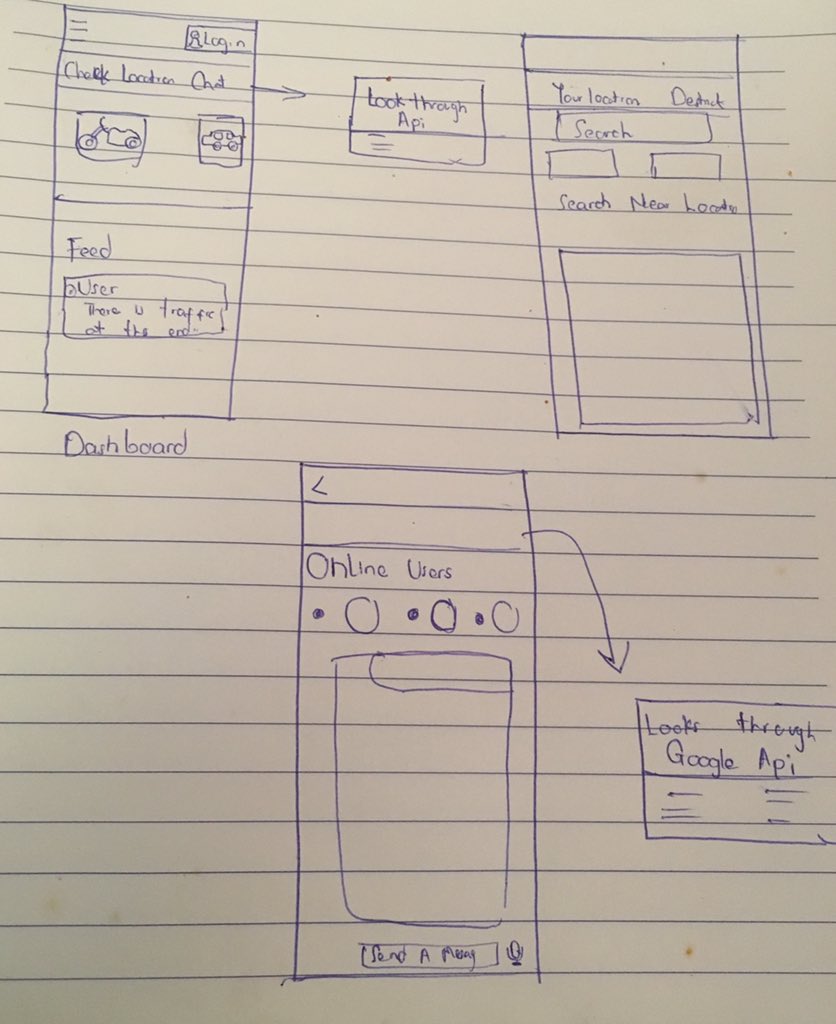 Login
Check Location Chat
Feed
User
There is traffic
at the end..
Dashboard
Look through
Api
Your location
Search
Search New Locatio
<
Online Users
Send A
Looks through
Google Api